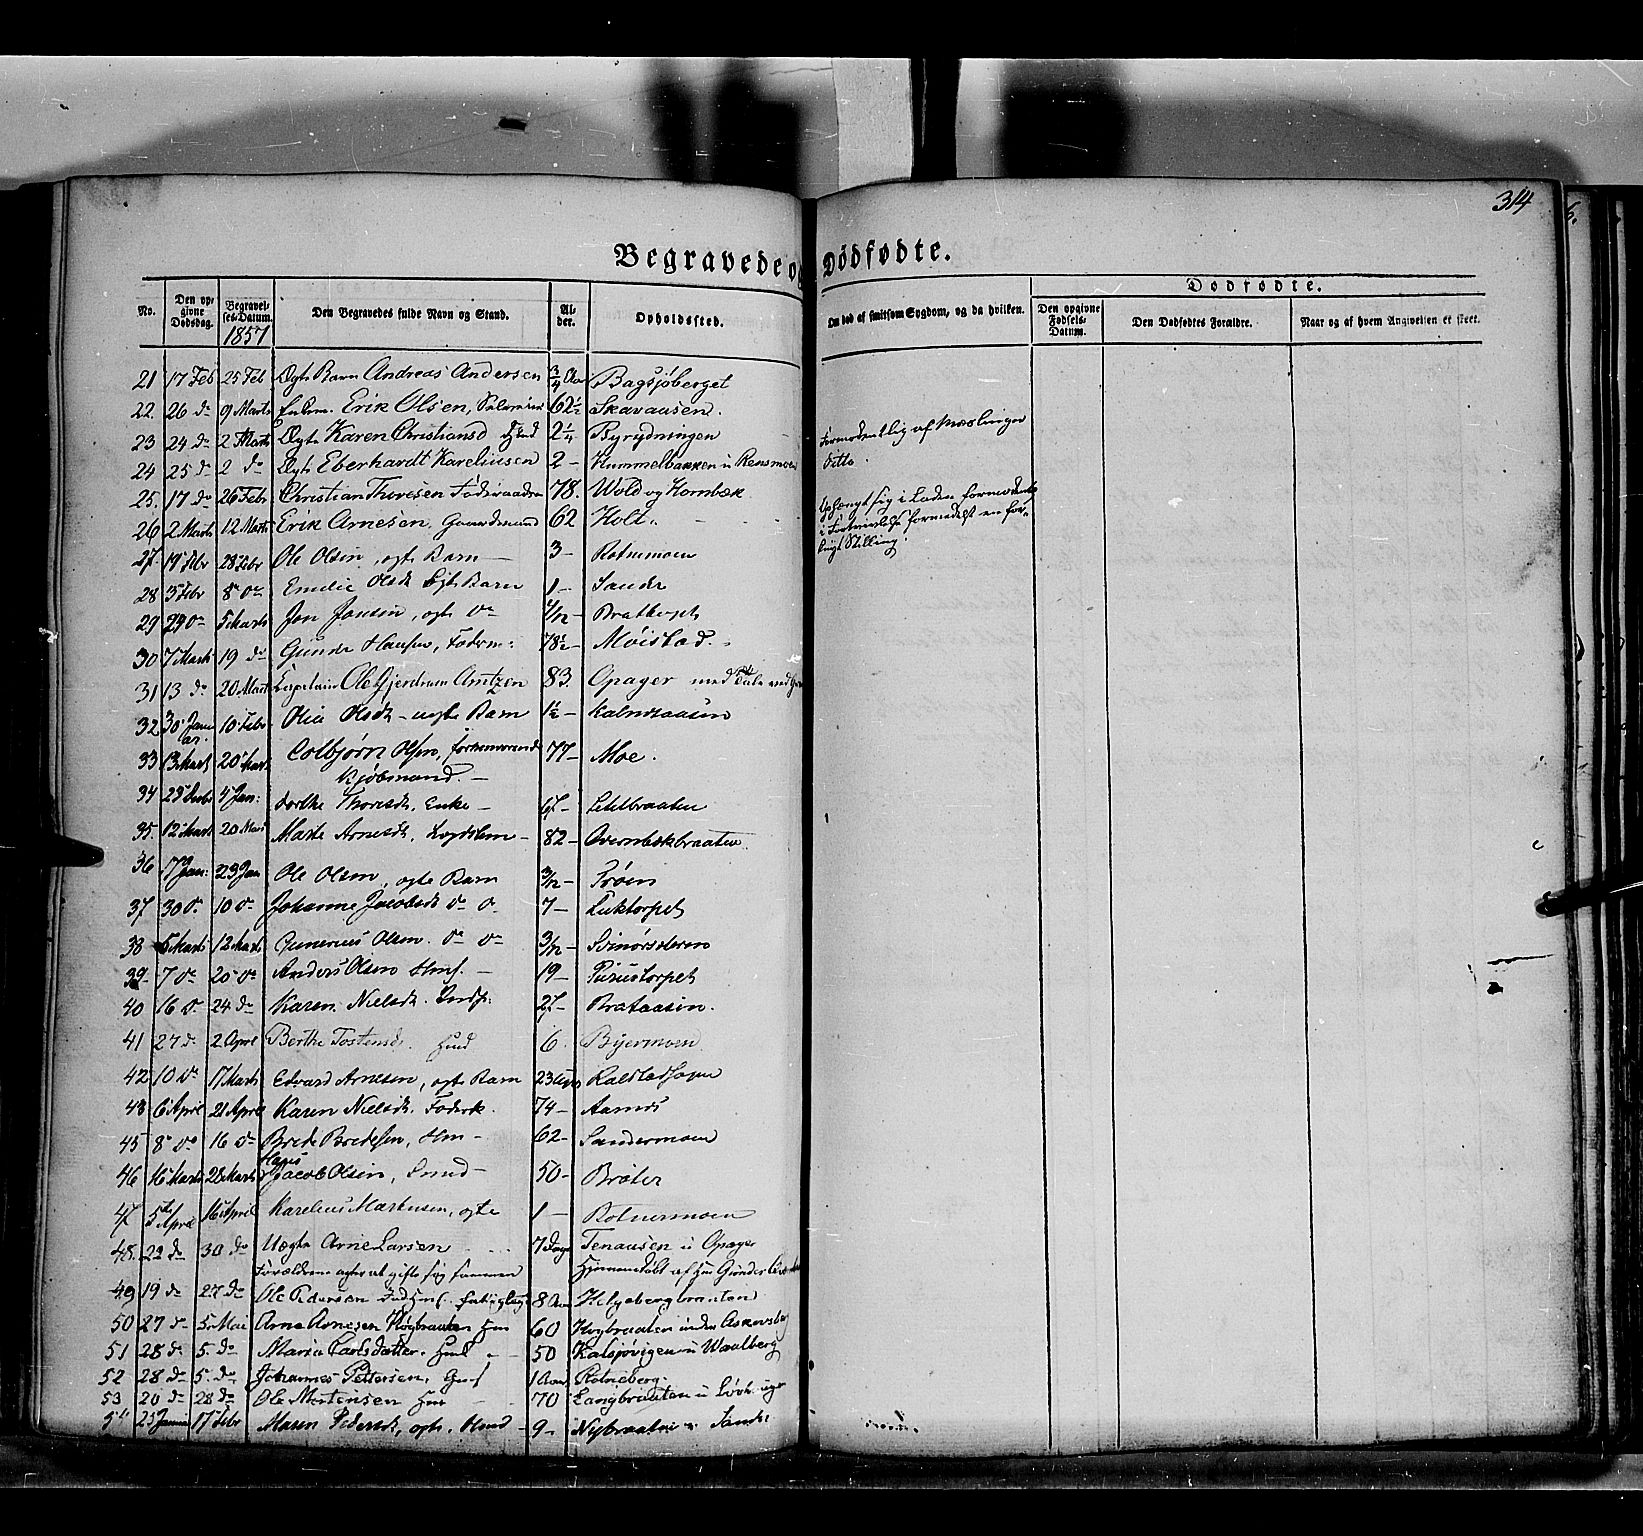 314
Begravede og Dødfødte.
No. Den opgivne Dødsdag. Begravelses-Datum. 1857 Den Begravedes fulde Navn og Stand. Alder. Opholdssted. Om død af smitsom Sygdom, og da hvilken. Dødfødte.
Den opgivne Fødsels-Datum. Den Dødfødtes Forældre. Naar og af hvem Angivelsen er skeet.
21 17 Feb 25 Feb Ægte Barn Andreas Andersen 3/4 Aar Bagsjøberget
22. 26 do 9 Marts Erik Olsen, 62½ Skavausen.
23 24 do 2 Marts Ægte Karen Christiansd 2¼ Byrydningen Formodentlig af Mæslinger
24 25 do 2 do Ægte Eberhardt Kareliusen 2 - Hummelbakken u Rensmoen ditto.
25. 17 do 26 Febr Christian Thoresen Føderaads 78. Wold og Hornbæk Ophængt sig i Laden formodentlig
26 2 Marts 12 Marts Erik Arnesen, Gaardmand 62 Holt. i Fortvivlelse formedelst en
27. 19 Febr 28 Febr Ole Olsen, ægte Barn - 3 - Rotnemoen Stilling.
28 3 Febr 8 do Emilie Olsd. ægte Barn 1 - Sande
29 29 do 5 Marts Jon Jonsen, ægte do 4/12 - Bratkopit
30 7 Marts 19 do Gunder Hansen,Føderm: 78½ - Møistad.
31 13 do 20 Marts Capitain Ole Gjerdrum Arntzen 83. Opager med Tale ved
32 30 Januar 10 Febr Olia Olsdt - uægte Barn 1½ - Kalneaasen
33 13 Marts 20 Marts Colbjørn Olsen, forhenværende 77 - Moe.
Kjøbmand. -
34 25 4 Jan: Dorthe Thoresdt. Enke - 67 - Letelbraaten
35. 12 Marts 20 Marts Marte Arnesdt. Lægdslem - 82 - Overnbekbraaten
36 17 Jan: 23 Jan Ole Olsen, ægte Barn 3/12 - Trøen
37 30 do 10 do Johanne Jacobsdt do do 7 - Luktorpet
38 5 Marts 12 Marts Gunerius Olsen. do do 3/12 -
39 7 do 20 do Anders Olsen Hmf. - 19 - Purustorpet
40 16 do 24 do Karen Nielsdt. 27 - Brataasin.
41 27 do 2 April Berthe Tostensd. Hmd 6. Byermoen
42 10 do 17 Marts Edvard Arnesen, ægte Barn 23 Kalstadhagen
43 6 April 21 April Karen Nielsdt. Føderk. 74 - Aarnes
45 8 do 16 do Brede Bredesen, Hm - 62 - Sandermoen
46 16 Marts 28 Marts Hans Jacob Olsen, - 50 - Brøter
47 5te April 16 April Karelius Markusen, ægte 1 - Rotnermoen
48. 22 do 30 do Uægte Arne Larsen 7 Dage Tenausen u Opager
Forældrene agter at gifte sig sammen Hjemmedøbt af
49 19 do 27 do Ole Pedersen 8 Aar Helgebergbraaten
50 27 do 5 Mai Arne Arnesen Høgbraaten Hm 60 Høgbraaten under Askersby
51 28 do 5. do Maria Carlsdatter. Hmd 50 Kalsjøvigen u Waalberg
52 28 do 5. do Johannes Pettersen, 1 Aar Rotneberg.
53 20 do 28 do Ole Mortensen Hm 70 Langbraaten u
54 25 Januar 17 Febr Maren Pedersdt, ægte Hmd - 9 - Nybraaten u Sande